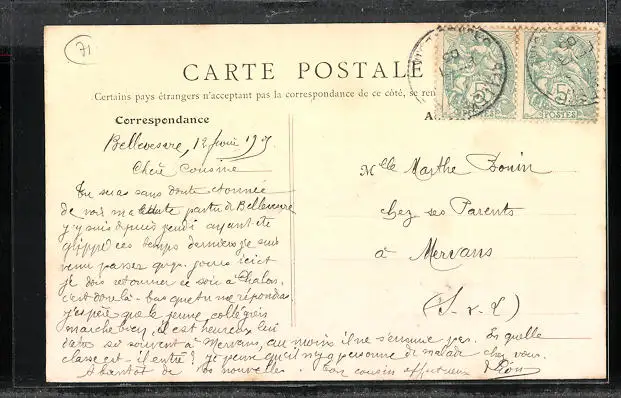 71
CARTE POSTALE
Certains pays étrangers n'acceptant pas la correspondance de ce côté, se ren
Correspondance
5
5
POSTES
Bellevesvre, 12 190
Chère Cousine
Tu seras sans doute étonnée
de voir ma partir de Bellevesvre
j'y suis depuis jeudi ayant été
grippé ces temps derniers je suis
venu passer qq. jours ici et
je dois retourner ce soir à Chalon,
c'est donc là-bas que tu me répondras
j'espère que le jeune collégien
marche bien, il est heureux lui
d'aller si souvent à Mervans, au moins il ne s'ennuie pas. En quelle
classe est-il entré? je pense qu'il n'y a personne de malade chez vous.
A bientôt de nouvelles. Ton cousin affectueux Léon
Mlle Marthe Bonin
chez ses Parents
à Mervans
(S.-&-L)